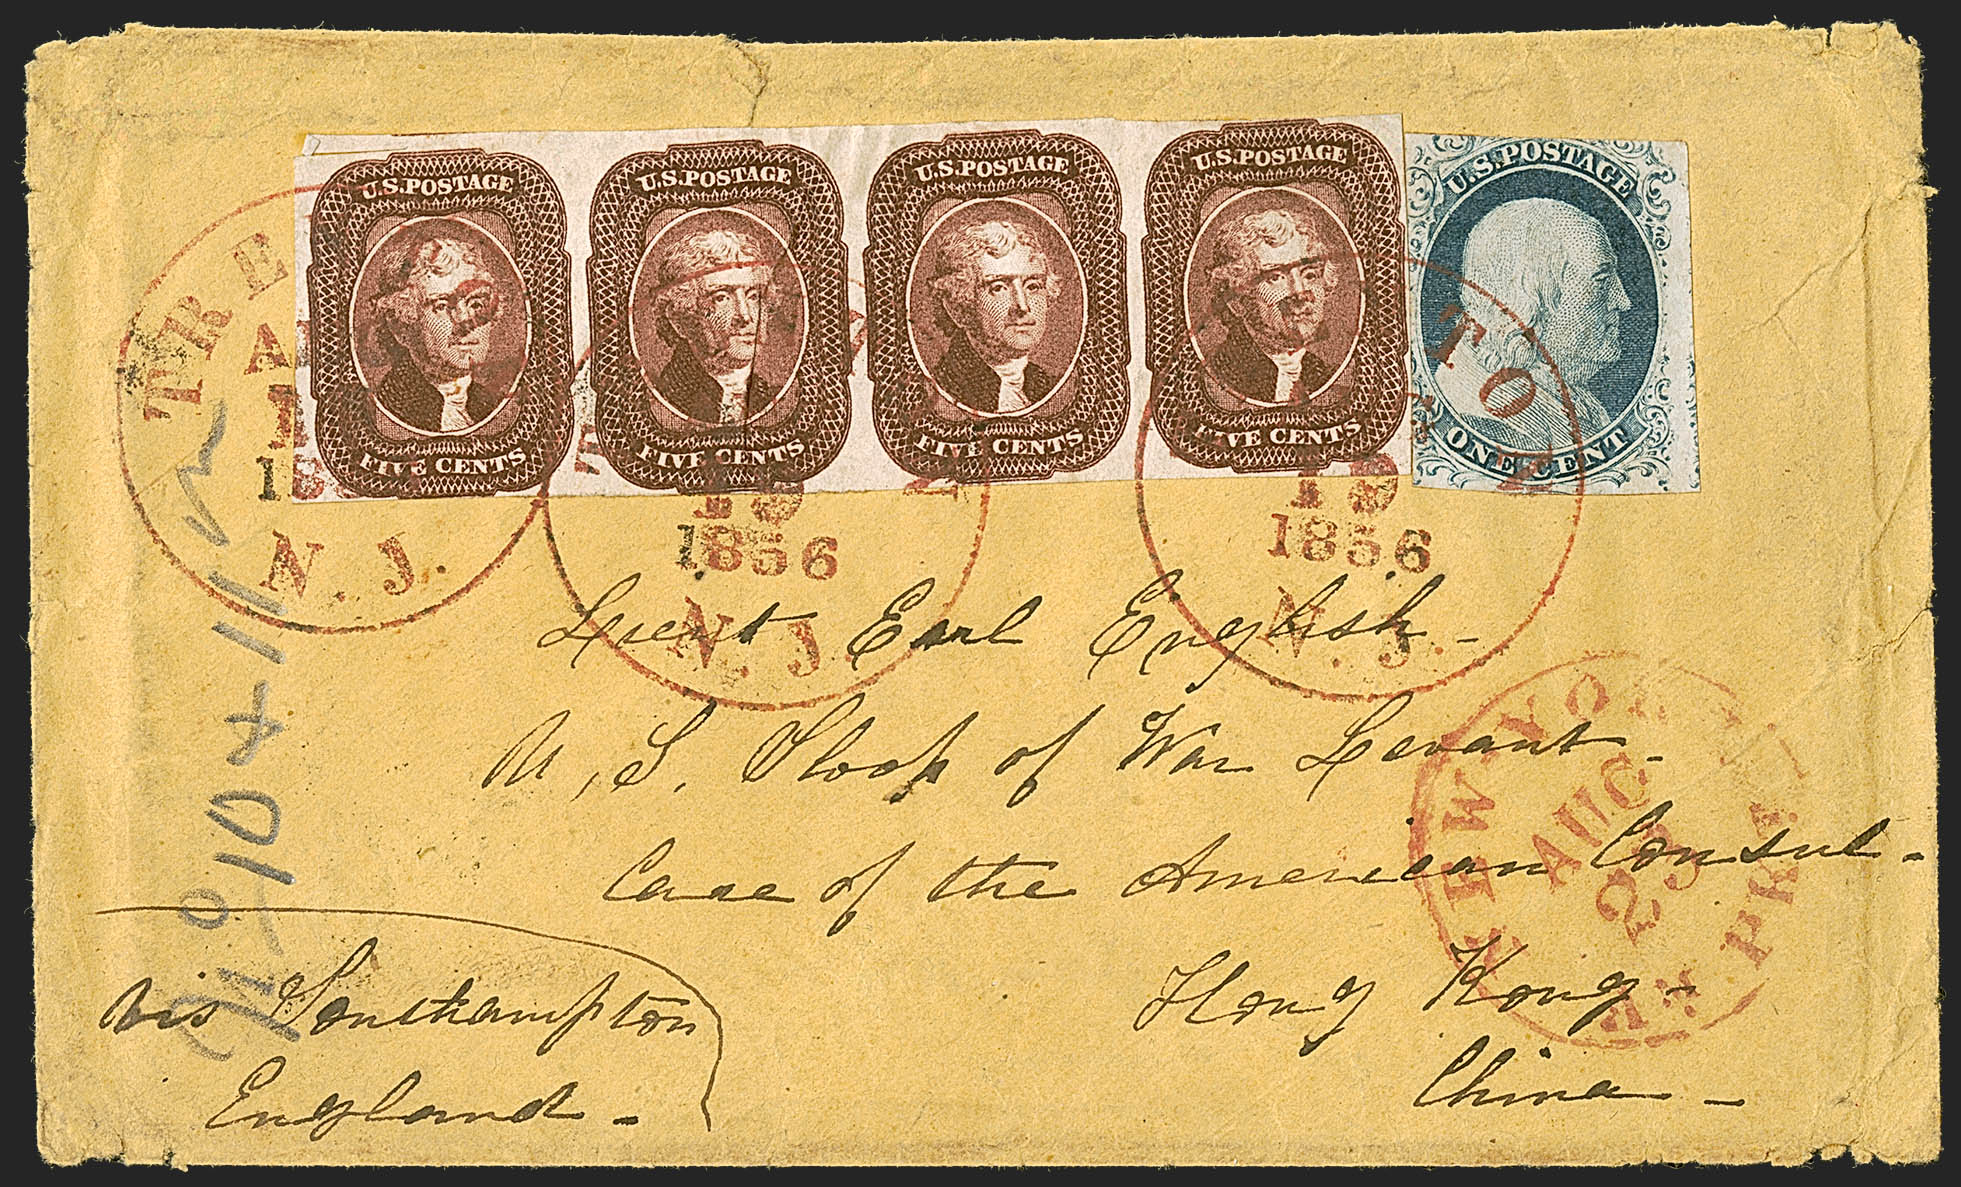 U.S. POSTAGE
FIVE CENTS
U.S. POSTAGE
FIVE CENTS
U.S. POSTAGE
FIVE CENTS
U.S. POSTAGE
FIVE CENTS
U.S. POSTAGE
ONE CENT
TRE
N. J.
1856
N. J.
TON
19
1856
N. J.
Lieut Earl English -
U, S. Sloop of War Levant -
Care of the American Consul -
Hong Kong -
China -
via Southampton
England -
NEW YORK
AUG
23
AM. PKT.